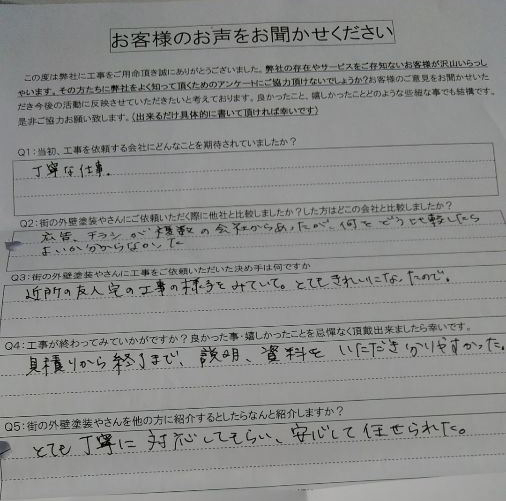 お客様のお声をお聞かせください
この度は弊社に工事をご用命頂き誠にありがとうございました。弊社の存在やサービスをご存知ないお客様が沢山いらっしゃ
います。その方たちに弊社をよく知って頂くためのアンケートにご協力頂けないでしょうか?お客様のご意見をお聞かせいた
だき今後の活動に反映させていただきたいと考えております。良かったこと、嬉しかったことどのような些細な事でも結構です。
是非ご協力お願い致します。（出来るだけ具体的に書いて頂ければ幸いです）
Q1:当初、工事を依頼する会社にどんなことを期待されていましたか?
丁寧な仕事。
Q2:街の外壁塗装やさんにご依頼いただく際に他社と比較しましたか?した方はどこの会社と比較しましたか?
広告、チラシが複数の会社からあったが、何をどう比較したら
よいか分からなかった
Q3:街の外壁塗装やさんに工事をご依頼いただいた決め手は何ですか
近所の友人宅の工事の様子をみていて。とてもきれいになったので。
Q4:工事が終わってみていかがですか?良かった事・嬉しかったことを忌憚なく頂戴出来ましたら幸いです。
見積りから終了まで、説明、資料をいただき分りやすかった。
Q5:街の外壁塗装やさんを他の方に紹介するとしたらなんと紹介しますか?
とても丁寧に対応してもらい、安心して任せられた。